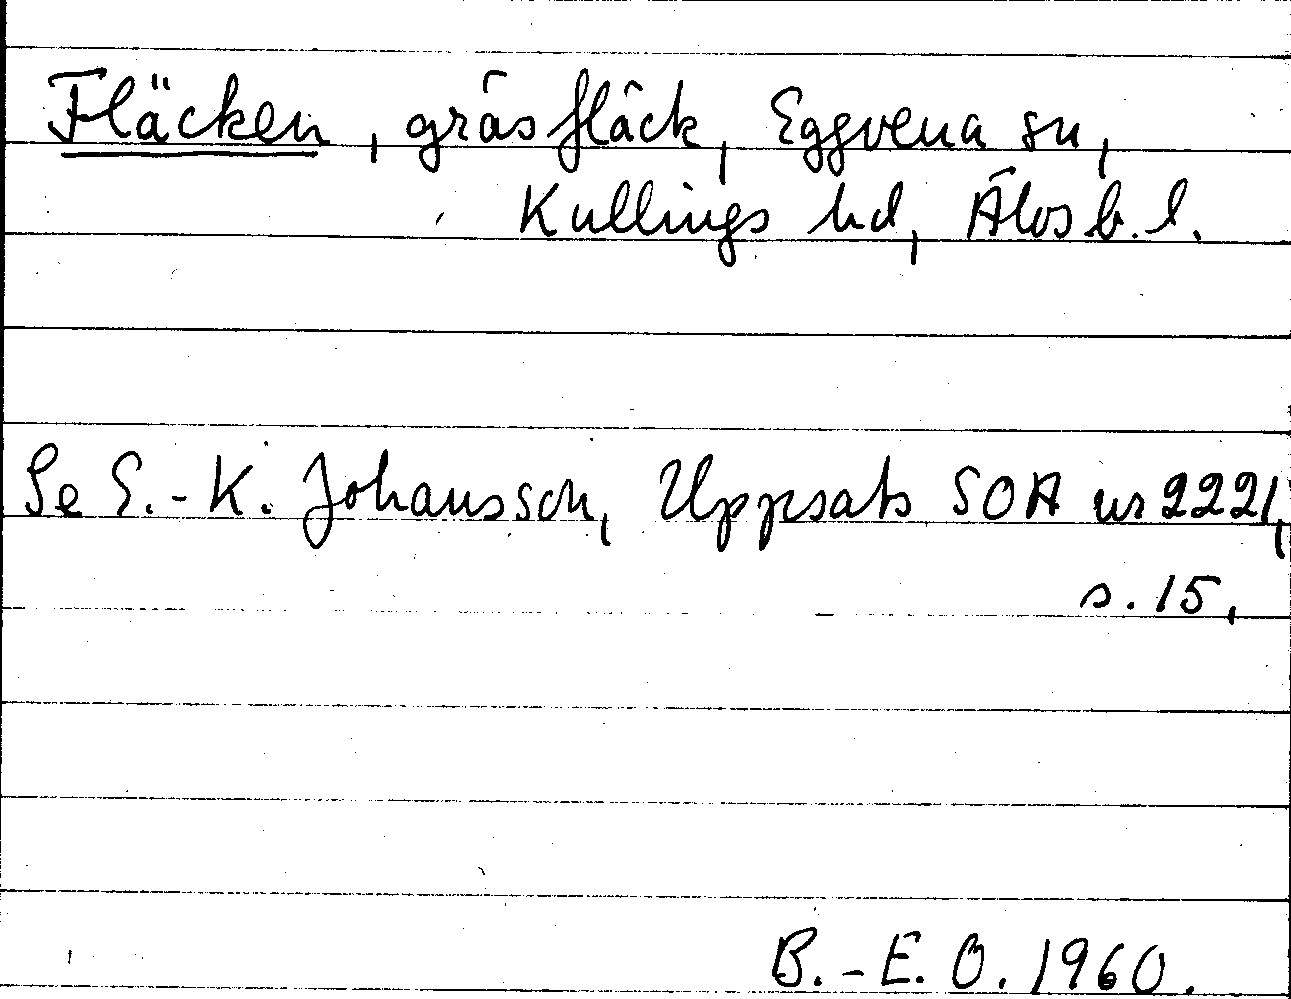 Fläcken, gräsfläck, Eggvena sn,
Kullings hd, Älvsb. l.
Se S.-K. Johansson, Uppsats SOA nr 2221,
s. 15.
B.-E. O. 1960.